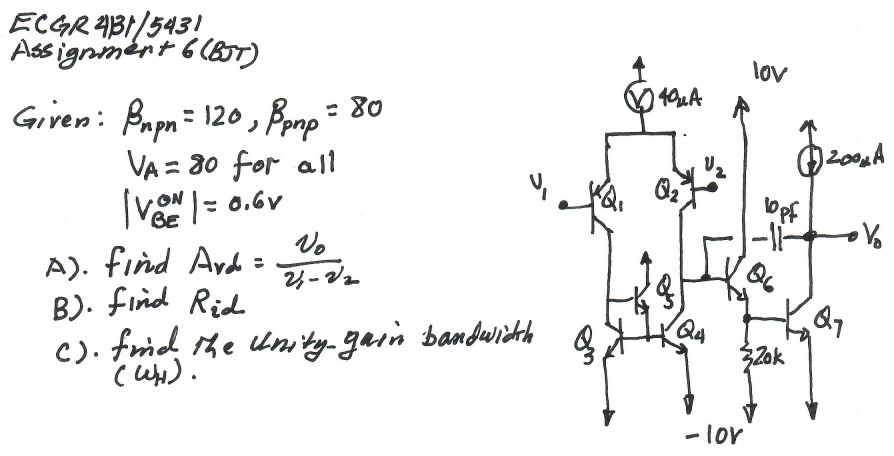 ECGR 4131/5431
Assignment 6 (BJT)
Given: βnpn = 120, βpnp = 80
VA = 80 for all
|VBE^ON| = 0.6V
A). find Avd = vo / (v1 - v2)
B). find Rid
C). find the unity-gain bandwidth
(ωH).
10V
40uA
200uA
V1
Q1
Q2
v2
10pf
Vo
Q5
Q6
Q3
Q4
Q7
20k
-10V